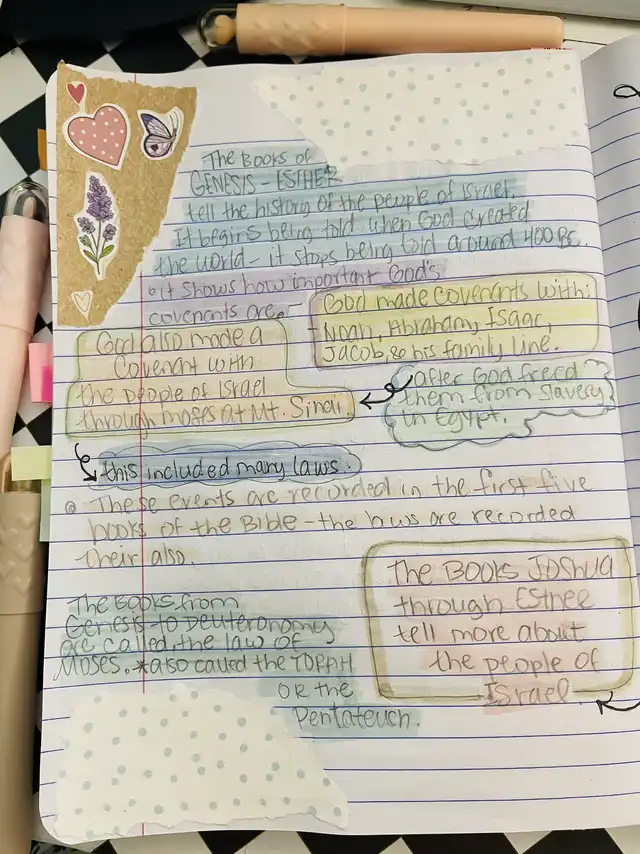 The Books of
GENESIS - ESTHER
tell the history of the people of Israel.
It begins being told when God created
the world - it stops being told around 400 BC.
• it shows how important God's
covenants are.
God made covenants with:
- Noah, Abraham, Isaac,
Jacob, & his family line.
God also made a
Covenant with
the people of Israel
through moses at Mt. Sinai.
after God freed
them from slavery
in Egypt.
this included many laws.
These events are recorded in the first five
books of the Bible - the laws are recorded
their also.
The Books from
Genesis to Deuteronomy
are called the law of
Moses. *also called the TORAH
OR the
Pentateuch.
The BOOKS JOSHUA
through Esther
tell more about
the people of
Israel.